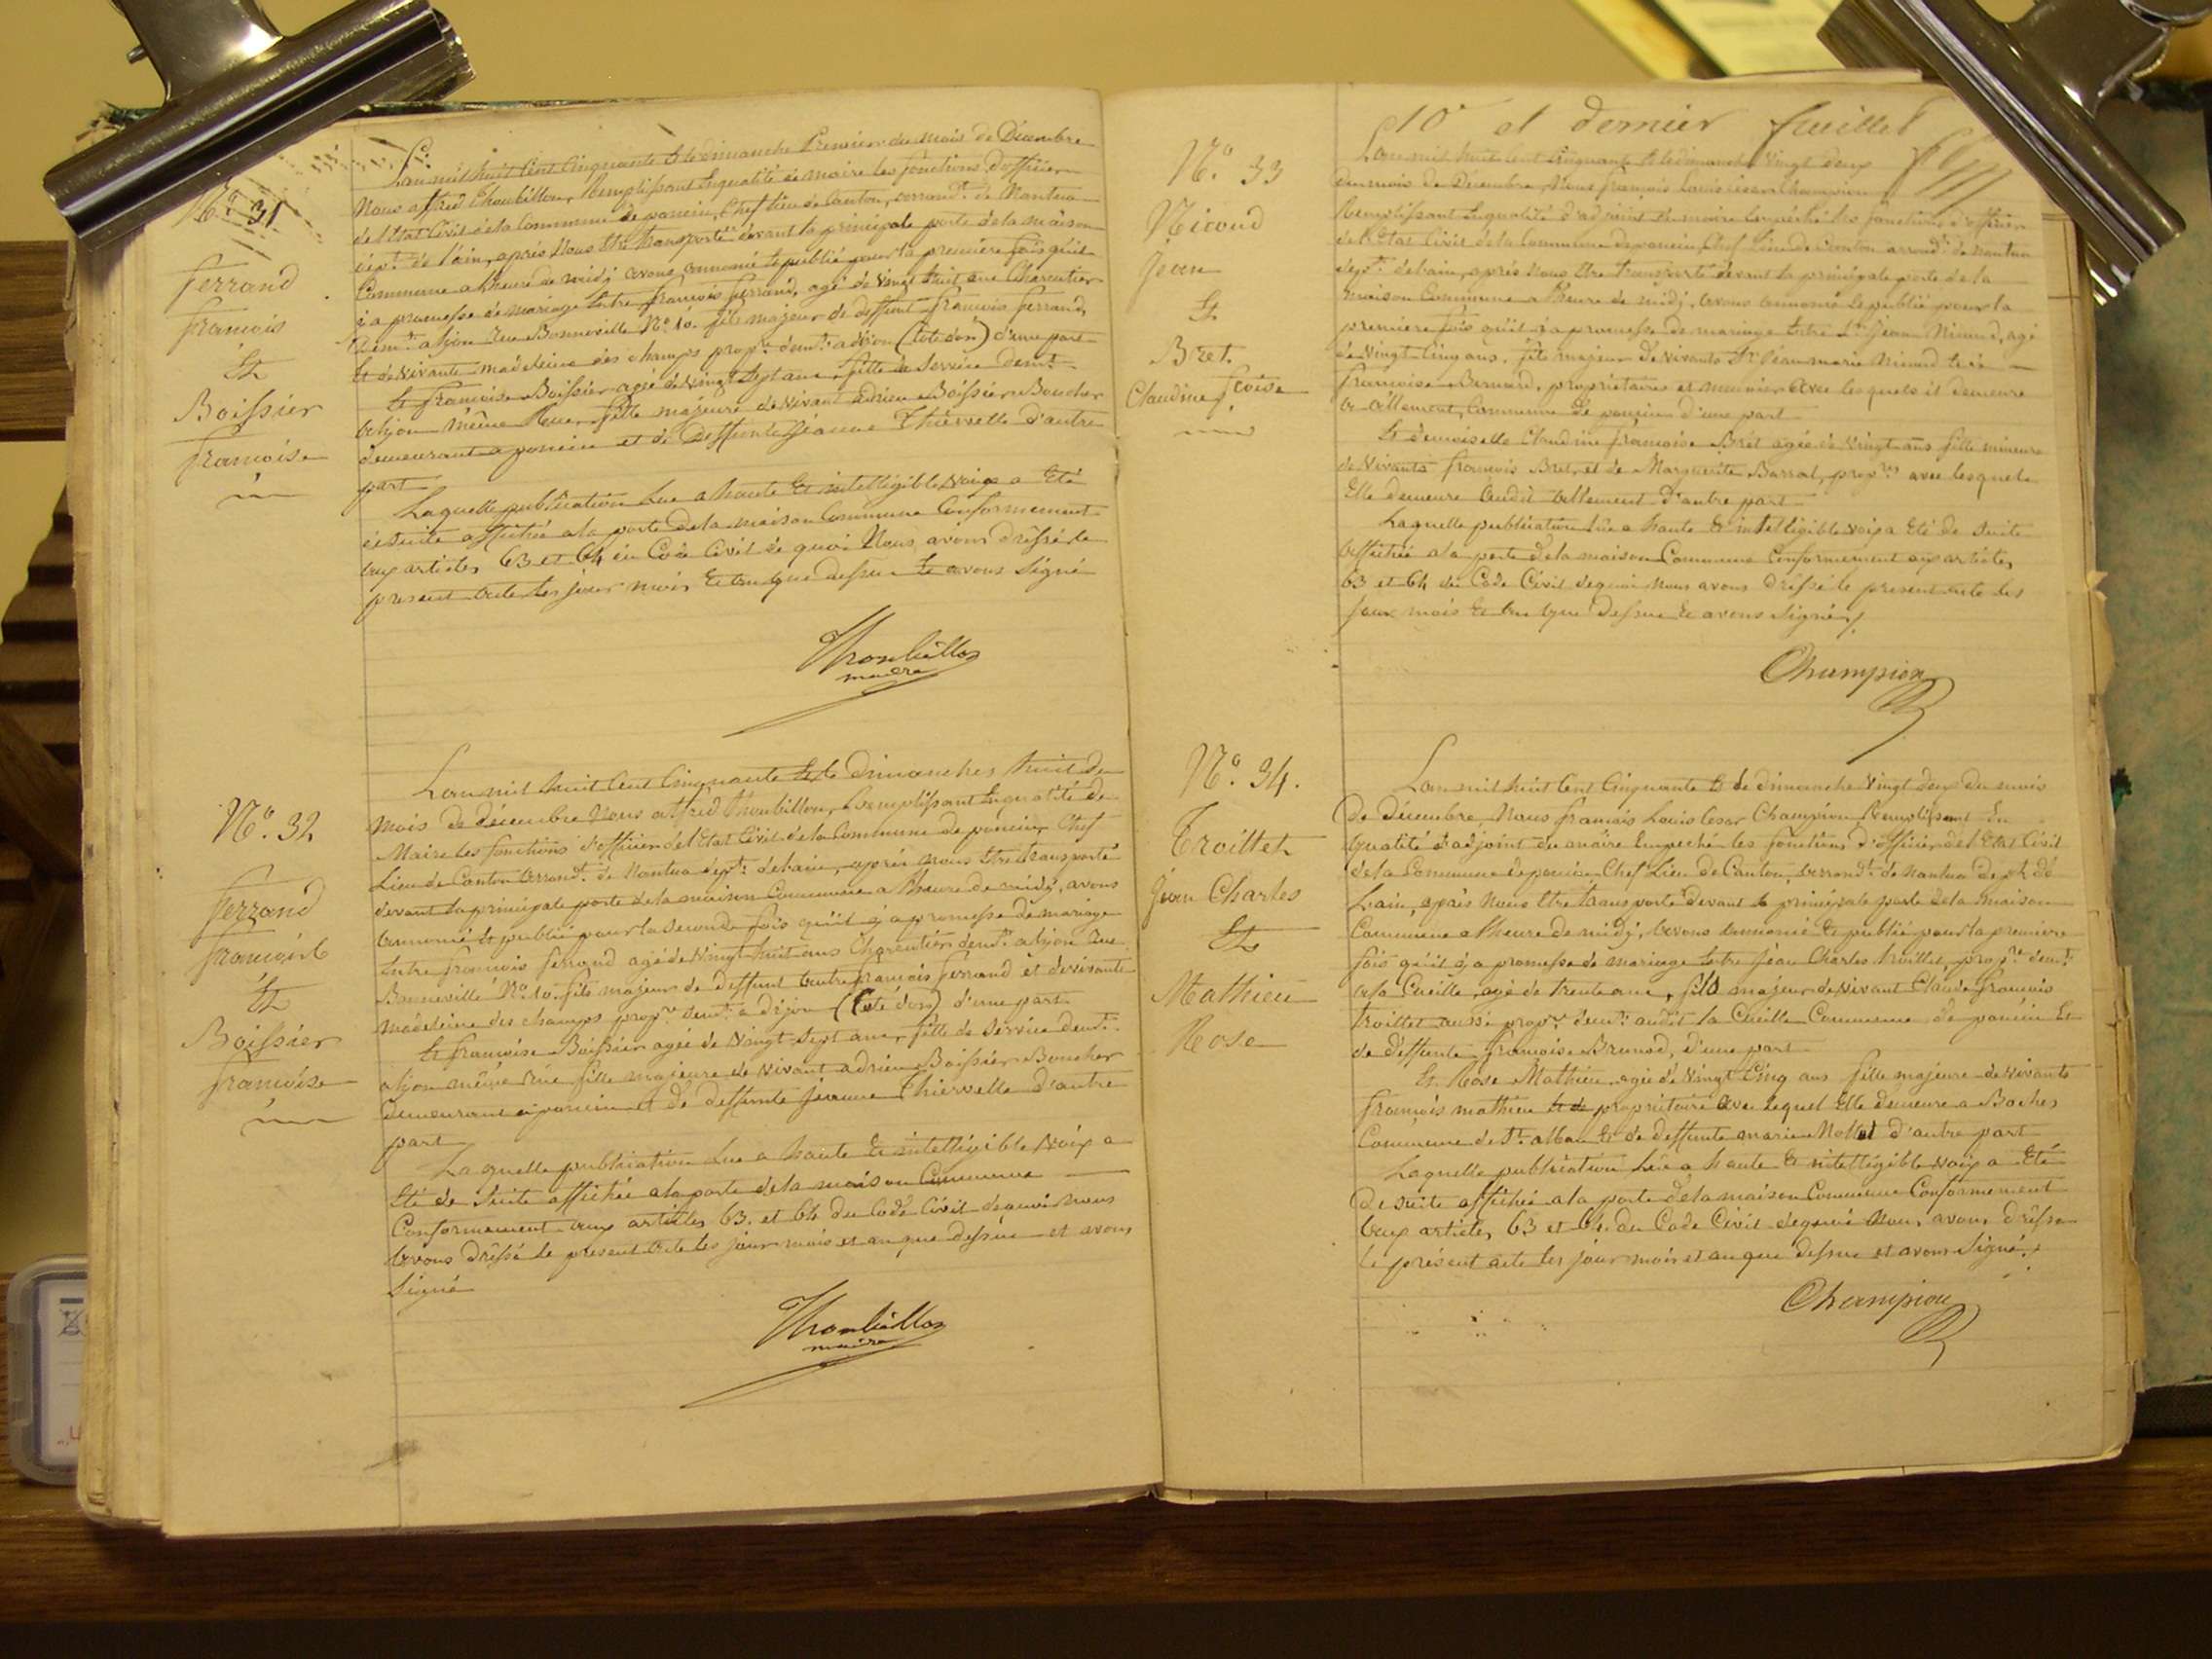 N.º 31
ferrand
francois
Et
Boissier
francoise
L'an mil huit Cent Cinquante Et le dimanche Premier du mois de Décembre
Nous alfred Thoubillon, Remplissant Enqualité de maire les fonctions D'officier
de l'état Civil de la Commune de poncin, Chef lieu de Canton, arrond.t de Nantua
dép.t de l'ain, après Nous être transporté devant la principale porte de la maison
Commune a l'heure de midi avons annoncé Et publié pour la première fois qu'il
y a promesse de mariage Entre françois ferrand, agé de vingt huit ans Charcutier
dem.t a lyon Rue Bonneville N.º 10. fils majeur de deffunt francois ferrand,
Et de vivante madeleine des champs prop.re dem.t a dijon (Cote d'or) d'une part
Et francoise Boissier agée de vingt Sept ans, fille de Service dem.t
a lyon même Rue, fille majeure de vivant adrien Boissier Boucher
demeurant a poncin et de Deffunte Jeanne Thiervelle d'autre
part
Laquelle publication Lue a haute Et intelligible voix a Eté
de Suite affichée a la porte de la maison Commune Conformement
aux articles 63 et 64 du Code Civil de quoi Nous avons dressé le
present acte les jour mois Et an que dessus Et avons Signé
Thoubillon
maire
N.º 32
ferrand
francois
Et
Boissier
francoise
L'an mil huit Cent Cinquante Et le dimanches huit du
mois de décembre Nous alfred Thoubillon, Remplissant Enqualité de
Maire les fonctions d'officier de l'Etat Civil de la Commune de poncin Chef
Lieu de Canton arrond.t de Nantua dep.t de l'ain, après nous être transporté
devant la principale porte de la maison Commune a l'heure de midi, avons
annoncé Et publié pour la seconde fois qu'il y a promesse de mariage
Entre francois ferrand agé de vingt huit ans Charcutier dem.t a lyon Rue
Bonneville N.º 10. fils majeur de deffunt autre francois ferrand et de vivante
madeleine des champs prop.re dem.t a dijon (Cote d'or) d'une part
Et francoise Boissier agée de vingt Sept ans, fille de Service dem.t
a lyon même Rue fille majeure de vivant adrien Boissier Boucher
demeurant a poncin et de deffunte jeanne Thiervelle d'autre
part
Laquelle publication Lue a haute Et intelligible voix a
Eté de Suite affichée a la porte de la maison Commune
Conformement aux articles 63. et 64 du Code Civil de quoi nous
avons dressé le present acte les jour mois et an que dessus et avons
Signé
Thoubillon
maire
10e et dernier feuillet
N.º 33
Nicoud
Jean
Et
Bret
Claudine fcoise
L'an mil huit Cent Cinquante Et le dimanche vingt deux
du mois de Décembre, Nous francois Louis César Champion
Remplissant Enqualité d'adjoint du maire Empeché les fonctions d'officier
de l'Etat Civil de la Commune de poncin, Chef Lieu de Canton arrond.t de Nantua
dep.t de l'ain, après Nous être transporté devant la principale porte de la
maison Commune a l'heure de midi, avons annoncé Et publié pour la
première fois qu'il y a promesse de mariage Entre S.r Jean Nicoud, agé
de vingt Cinq ans, fils majeur de vivants S.r Jean marie Nicoud Et de
francoise Bernard, propriétaires et meunier avec lesquels il demeure
a allement, Commune de poncin d'une part
Et demoiselle Claudine francoise Bret agée de vingt ans fille mineure
de vivants francois Bret et de Marguerite Barral, prop.res avec lesquels
Elle demeure audit allement d'autre part
Laquelle publication Lue a haute Et intelligible voix a Eté de Suite
affichée a la porte de la maison Commune Conformement aux articles
63 et 64 du Code Civil de quoi nous avons dressé le present acte les
jour mois Et an que dessus Et avons Signé
Champion
N.º 34.
Troillet
Jean Charles
Et
Mathieu
Rose
L'an mil huit Cent Cinquante Et le dimanche vingt deux du mois
De décembre, Nous francois Louis César Champion Remplissant En
qualité d'adjoint du maire Empeché les fonctions d'officier de l'Etat Civil
de la Commune de poncin, Chef Lieu de Canton, arrond.t de nantua dep.t de
L'ain, après Nous être transporté devant la principale porte de la maison
Commune a l'heure de midi, avons annoncé Et publié pour la première
fois qu'il y a promesse de mariage Entre Jean Charles troillet, prop.re dem.t
a la Cueille, agé de trente ans, fils majeur de vivant Claude francois
Troillet aussi prop.re dem.t audit la Cueille Commune de poncin Et
de deffunte francoise Brunod, d'une part
Et Rose Mathieu agée de vingt Cinq ans fille majeure de vivante
francois mathieu Et de propriétaire avec lequel Elle demeure a Boches
Commune de S.t alban Et de deffunte marie Mollet d'autre part
Laquelle publication Lue a haute Et intelligible voix a Eté
De suite affichée a la porte de la maison Commune Conformement
aux articles 63 et 64. du Code Civil de quoi Nous avons dressé
le présent acte les jour mois et an que dessus et avons Signé.
Champion